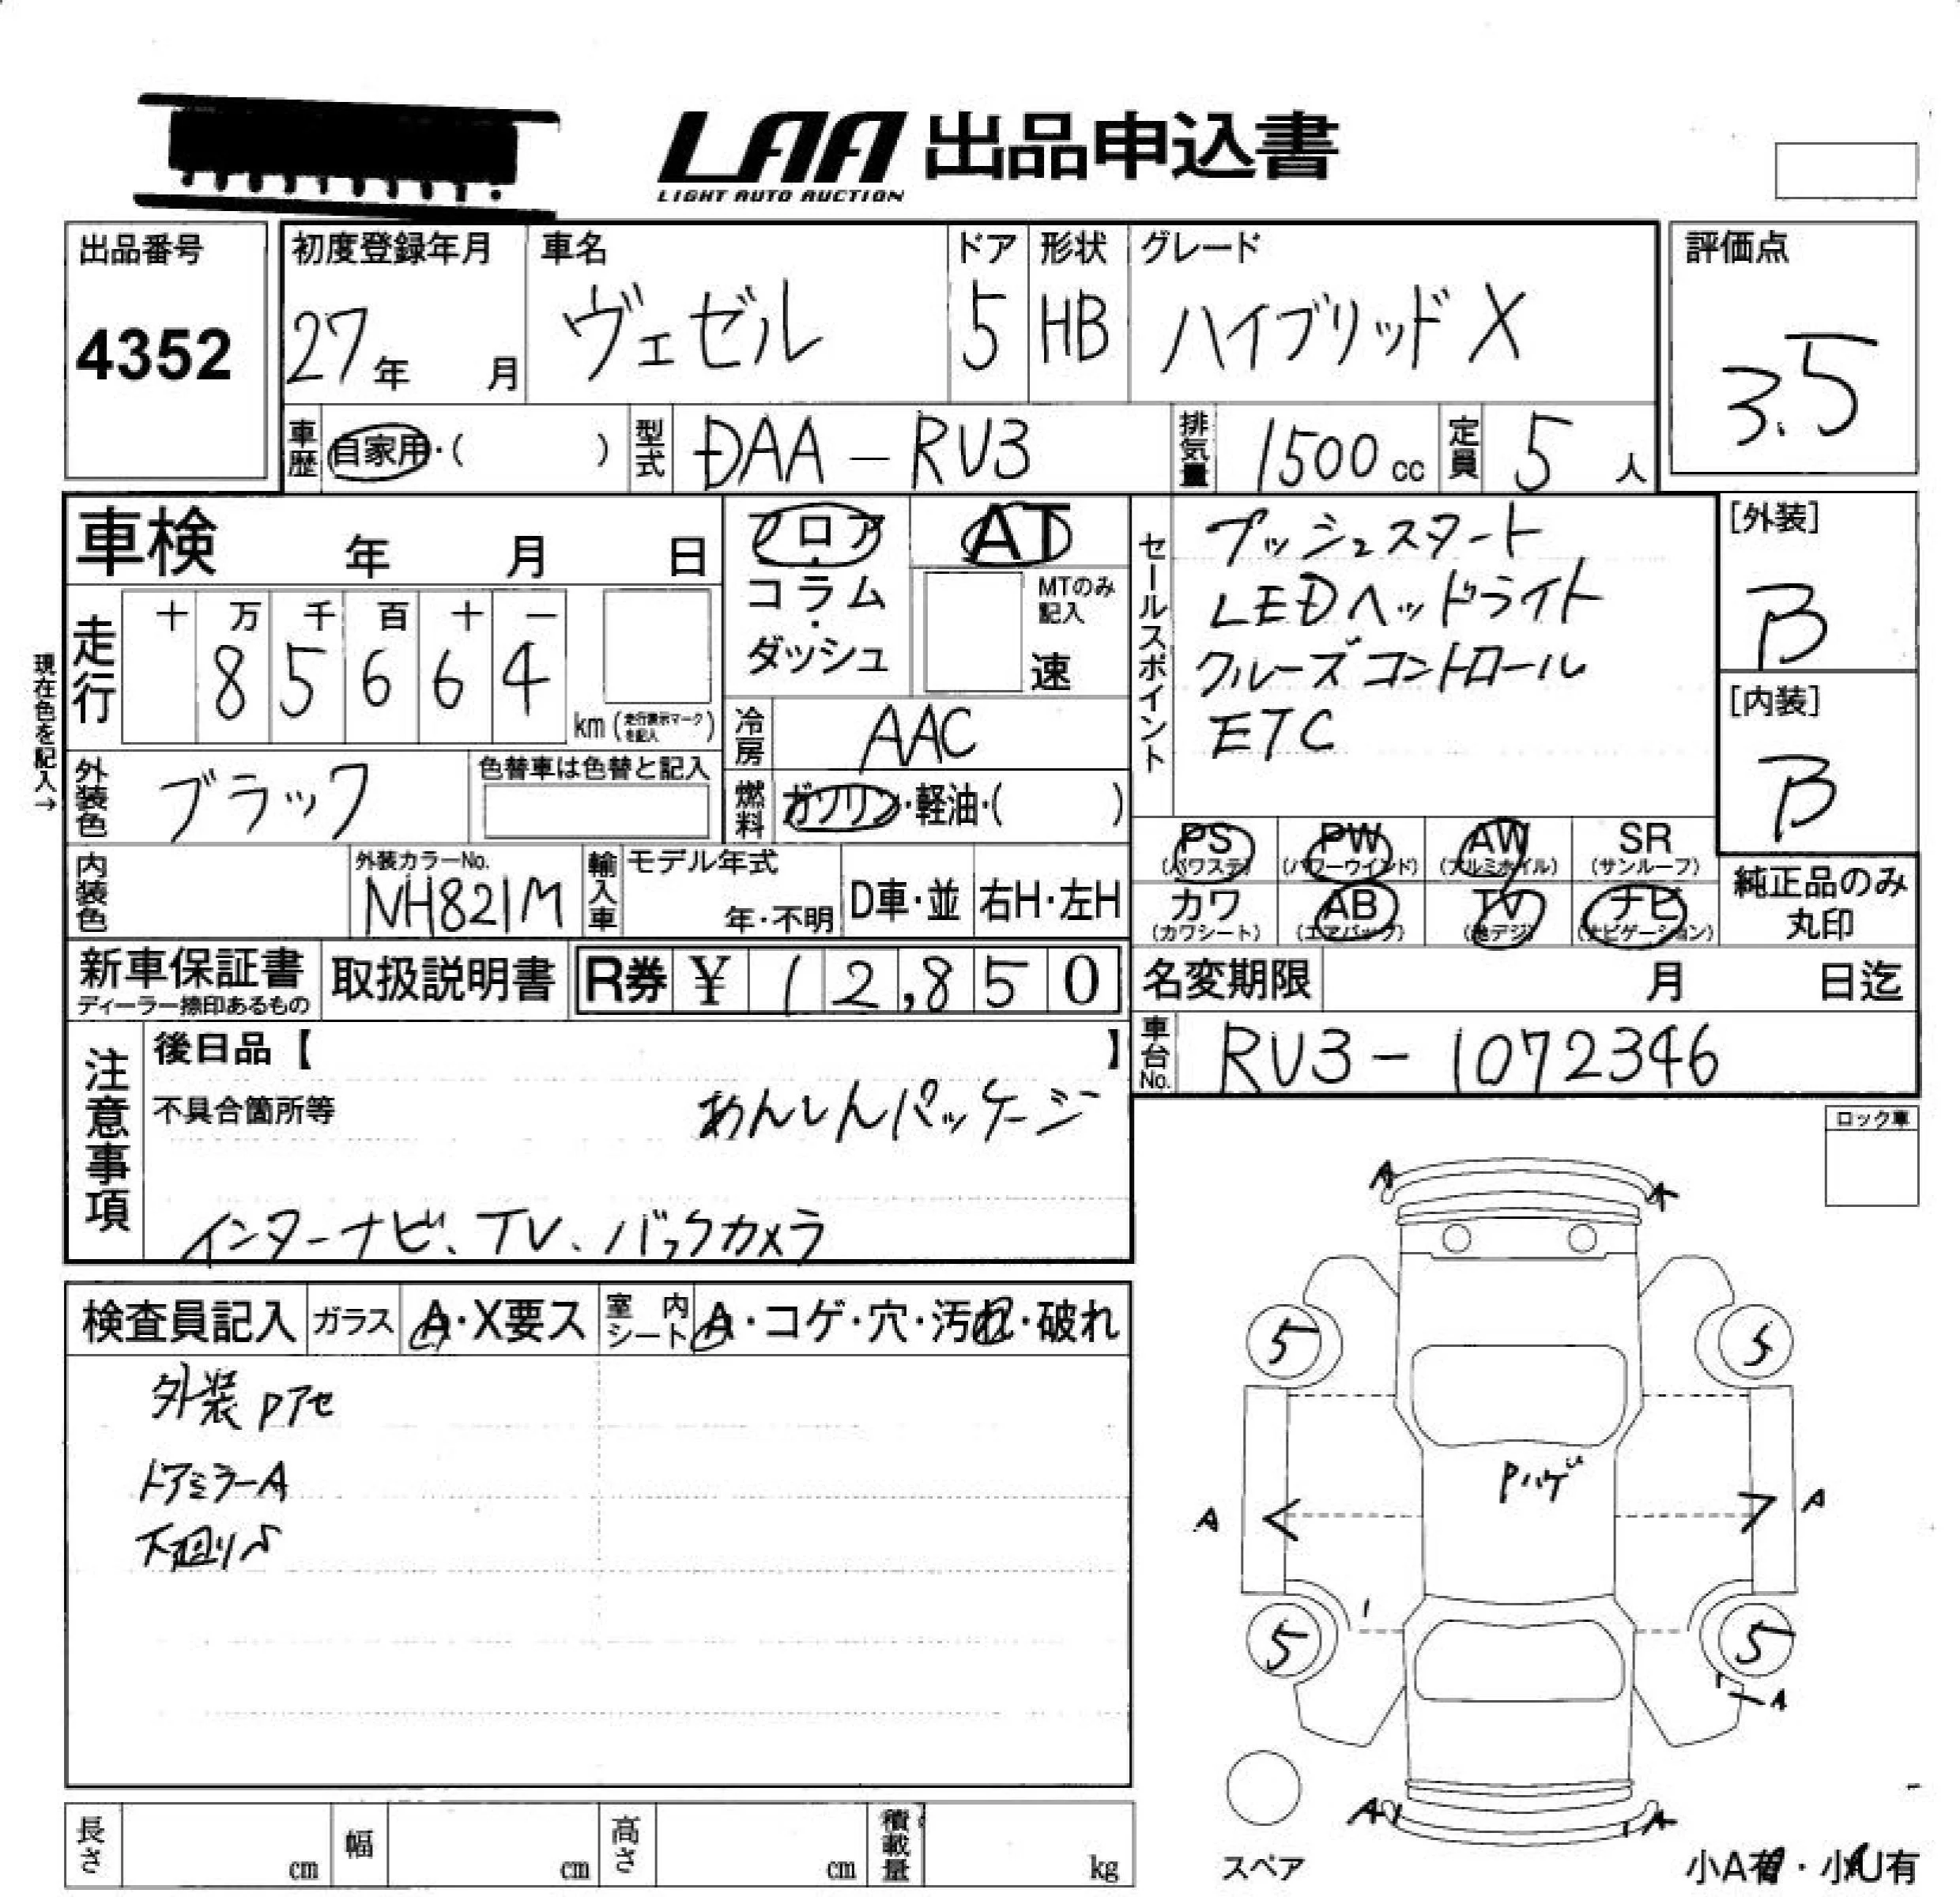 LAA 出品申込書
LIGHT AUTO AUCTION
出品番号
4352
初度登録年月
27年 月
車名
ヴェゼル
ドア
5
形状
HB
グレード
ハイブリッド X
評価点
3.5
車歴 自家用・( )
型式 DAA-RU3
排気量 1500 cc
定員 5 人
車検 年 月 日
フロア・コラム・ダッシュ
AT
MTのみ記入
速
セールスポイント
プッシュスタート
LEDヘッドライト
クルーズコントロール
ETC
[外装]
B
[内装]
B
現在色を記入→
走行
十 万 千 百 十 一
8 5 6 6 4
km (走行表示マークを記入)
冷房 AAC
燃料 ガソリン・軽油・( )
外装色 ブラック
色替車は色替と記入
内装色
外装カラーNo.
NH821M
輸入車
モデル年式
年・不明
D車・並
右H・左H
PS (パワステ)
PW (パワーウインド)
AW (アルミホイル)
SR (サンルーフ)
カワ (カワシート)
AB (エアバッグ)
TV (地デジ)
ナビ (ナビゲーション)
純正品のみ
丸印
新車保証書
ディーラー捺印あるもの
取扱説明書
R券 ¥ 12,850
名変期限 月 日迄
車台No. RU3-1072346
注意事項
後日品【 】
不具合箇所等
あんしんパッケージ
インターナビ、TV、バックカメラ
ロック車
検査員記入
ガラス A・X要ス
室内シート A・コゲ・穴・汚れ・破れ
外装Pアセ
ドアミラーA
下廻りS
A
A
5
5
Pハゲ
A
A
5
5
A
A
A
スペア
小A有・小U有
長さ cm
幅 cm
高さ cm
積載量 kg